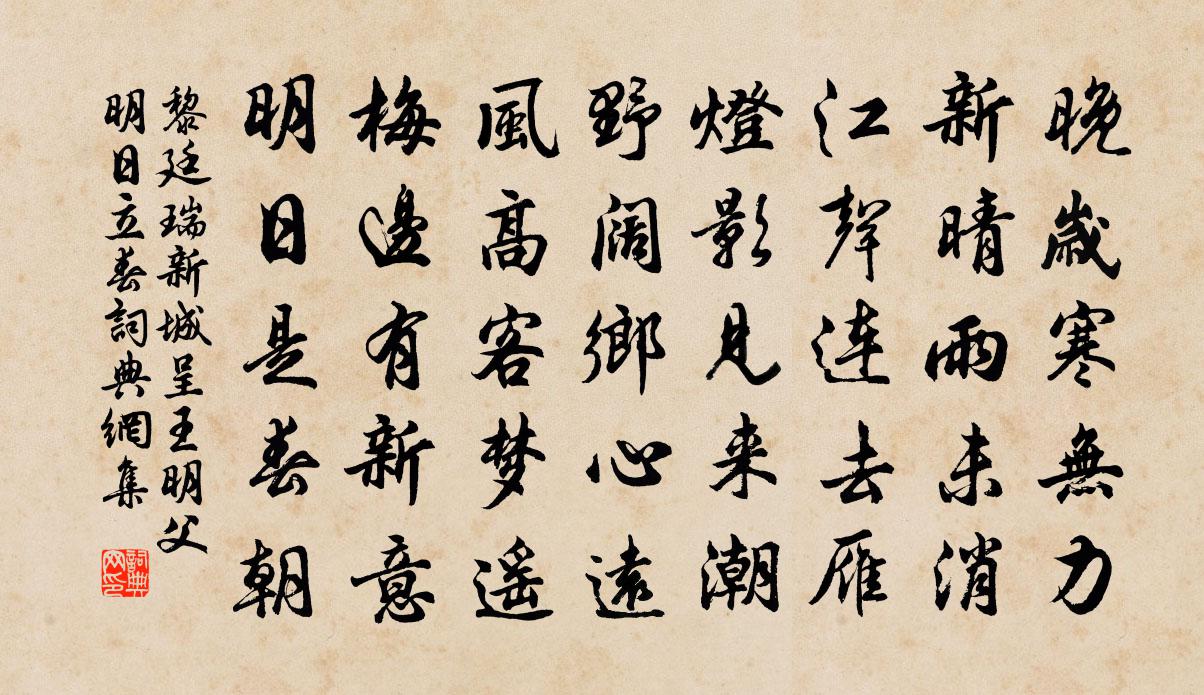 晚歲寒無力
新晴雨未消
江聲連去雁
燈影見来潮
野阔鄉心遠
風高客梦遥
梅邊有新意
明日是春朝
黎廷瑞新城呈王明父
明日立春詞典網集
詞典网印